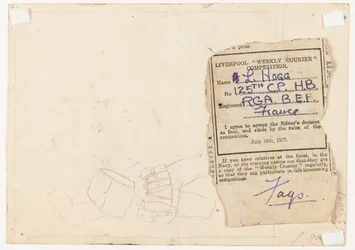 LIVERPOOL "WEEKLY COURIER"
COMPETITION.
Name L. Hogg
No. 125TH C.P. H.B.
Regiment R.G.A. B.E.F.
France
I agree to accept the Editor's decision
as final, and abide by the rules of the
competition.
July 14th, 1917.
If you have relatives at the front, in the
Navy, or the training camps see that they get
a copy of the "Weekly Courier" regularly,
so that they can participate in this interesting
competition.